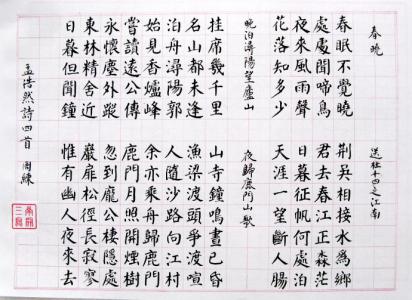 春曉
春眠不覺曉
處處聞啼鳥
夜來風雨聲
花落知多少
送杜十四之江南
荊吳相接水為鄉
君去春江正淼茫
日暮征帆何處泊
天涯一望斷人腸
晚泊潯陽望廬山
挂席幾千里
名山都未逢
泊舟潯陽郭
始見香爐峰
嘗讀遠公傳
永懷塵外蹤
東林精舍近
日暮但聞鐘
夜歸鹿門山歌
山寺鐘鳴晝已昏
漁梁渡頭爭渡喧
人隨沙路向江村
余亦乘舟歸鹿門
鹿門月照開煙樹
忽到龐公棲隱處
巖扉松徑長寂寥
惟有幽人夜來去
孟浩然詩四首